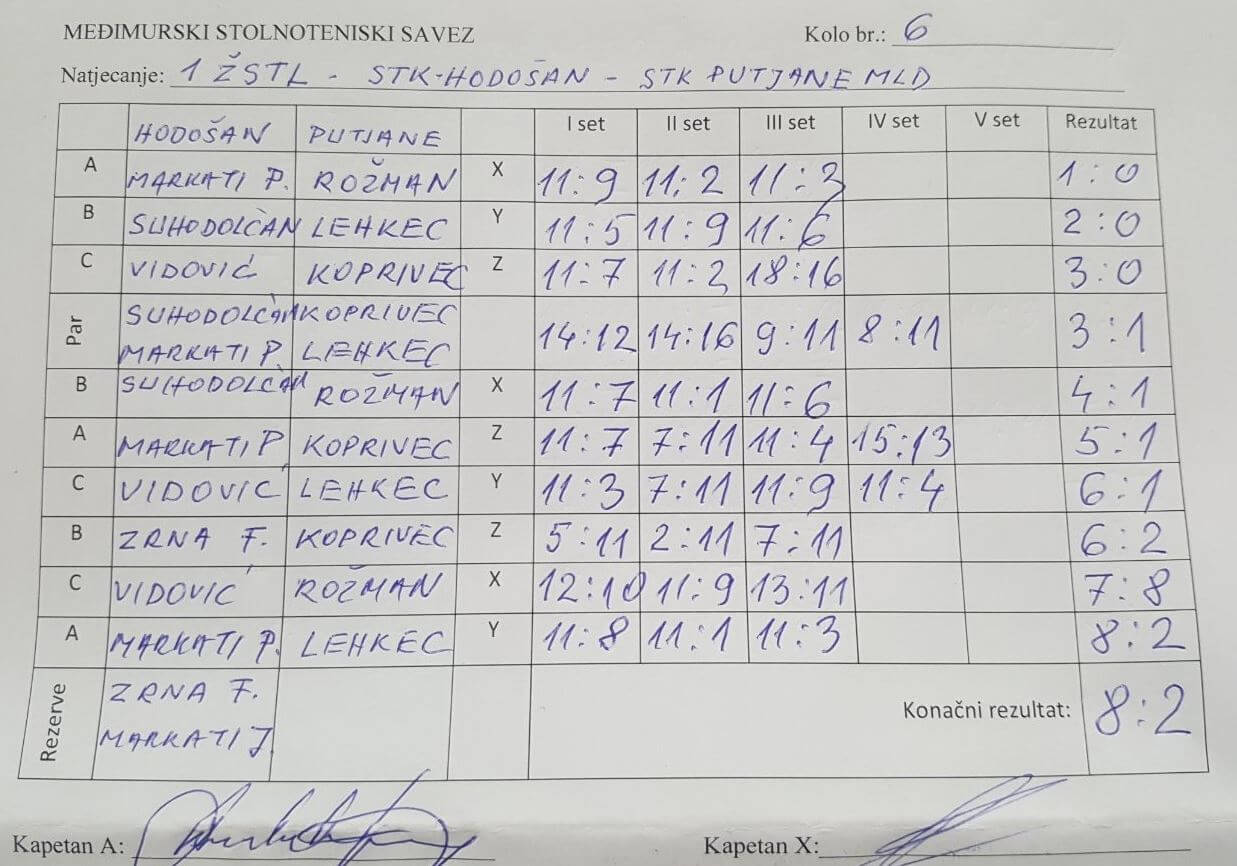 MEĐIMURSKI STOLNOTENISKI SAVEZ Kolo br.: 6
Natjecanje: 1 ŽSTL - STK-HODOŠAN - STK PUTJANE MLD
HODOŠAN PUTJANE I set II set III set IV set V set Rezultat
A MARKATI P. ROŽMAN X 11:9 11:2 11:3 1:0
B SUHODOLČAN LEHKEC Y 11:5 11:9 11:6 2:0
C VIDOVIĆ KOPRIVEC Z 11:7 11:2 18:16 3:0
Par SUHODOLČAN KOPRIVEC
MARKATI P. LEHKEC 14:12 14:16 9:11 8:11 3:1
B SUHODOLČAN ROŽMAN X 11:7 11:1 11:6 4:1
A MARKATI P KOPRIVEC Z 11:7 7:11 11:4 15:13 5:1
C VIDOVIĆ LEHKEC Y 11:3 7:11 11:9 11:4 6:1
B ZRNA F. KOPRIVEC Z 5:11 2:11 7:11 6:2
C VIDOVIĆ ROŽMAN X 12:10 11:9 13:11 7:8
A MARKATI P. LEHKEC Y 11:8 11:1 11:3 8:2
Rezerve ZRNA F.
MARKATI J. Konačni rezultat: 8:2
Kapetan A: Kapetan X: